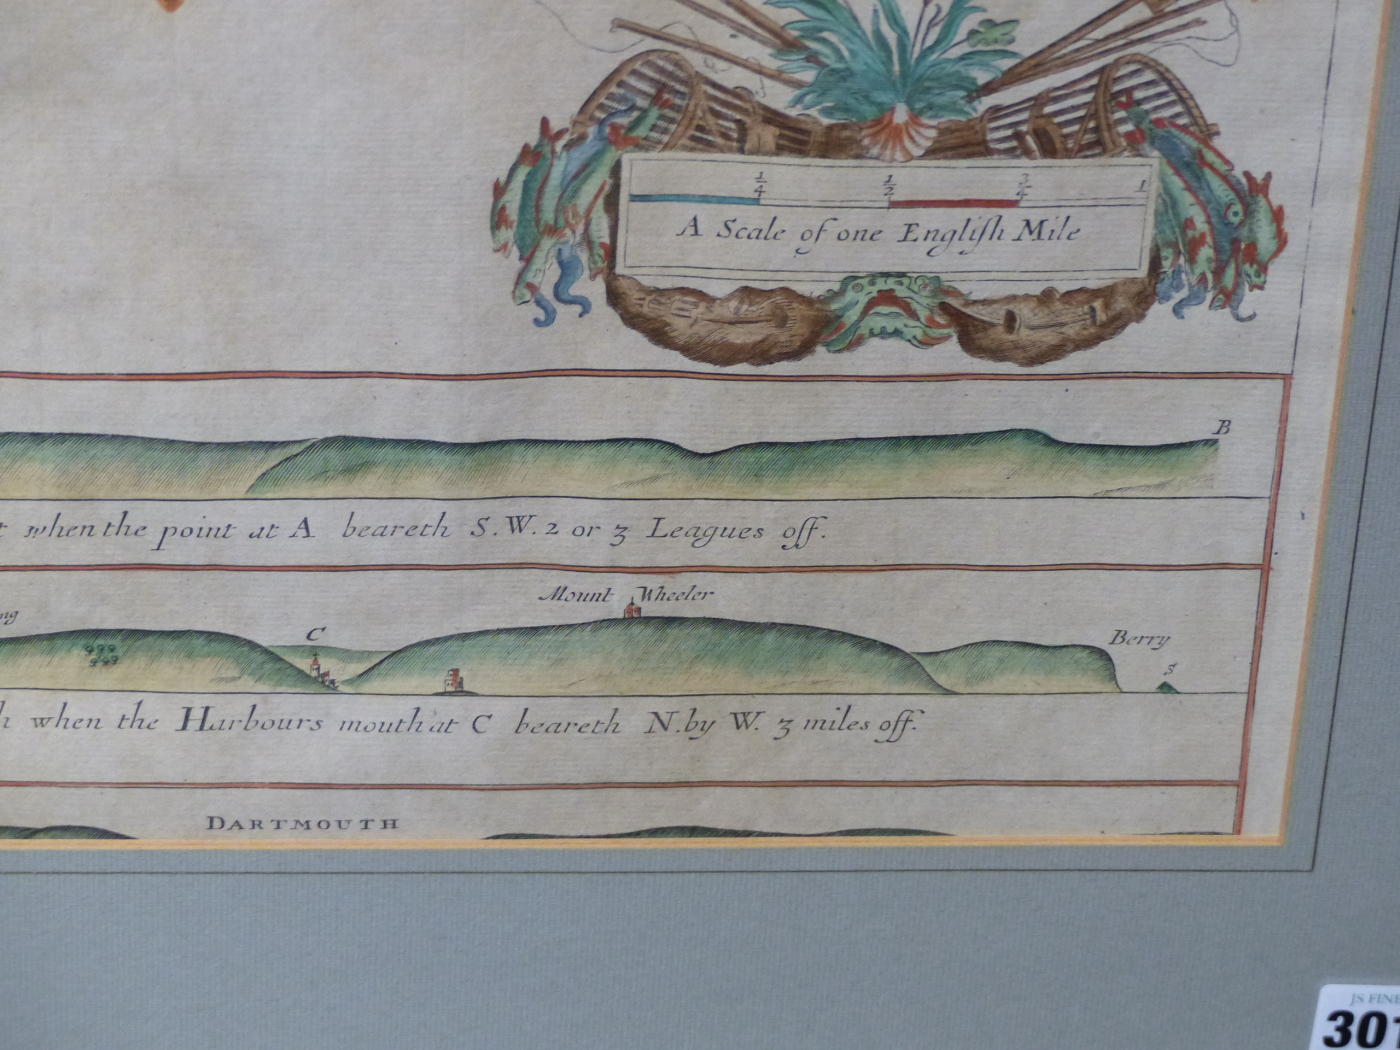 1/4 1/2 3/4 1
A Scale of one Engliſh Mile
B
when the point at A beareth S.W. 2 or 3 Leagues off.
Mount Wheeler
C
Berry
S
when the Harbours mouth at C beareth N. by W. 3 miles off.
DARTMOUTH
JS FINE
301